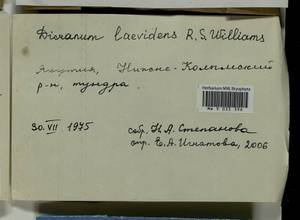 Dicranum laevidens R.S. Williams
Якутия, Нижне-Колымский
р-н, тундра.
Herbarium MW, Bryophyta
30.VII 1975
собр. Н.А. Степанова
опр. Е.А. Игнатова, 2006